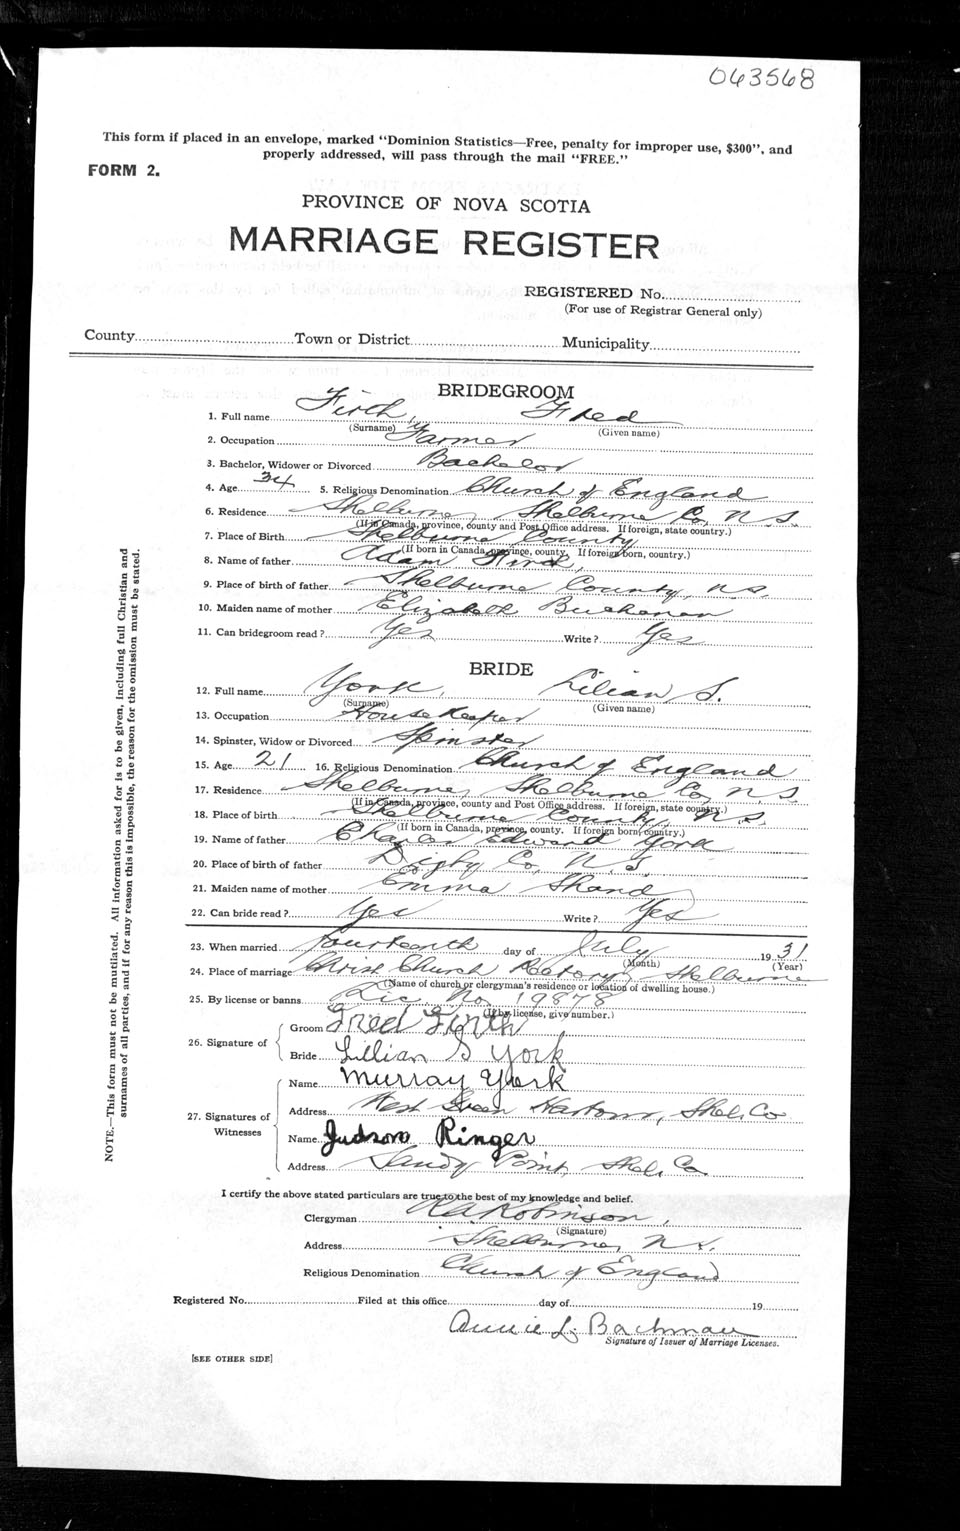 063568
This form if placed in an envelope, marked "Dominion Statistics—Free, penalty for improper use, $300", and
properly addressed, will pass through the mail "FREE."
FORM 2.
PROVINCE OF NOVA SCOTIA
MARRIAGE REGISTER
REGISTERED No.
(For use of Registrar General only)
County Town or District Municipality
BRIDEGROOM
1. Full name Firth, Fred
(Surname) (Given name)
2. Occupation Farmer
3. Bachelor, Widower or Divorced Bachelor
4. Age 34 5. Religious Denomination Church of England
6. Residence Shelburne, Shelburne Co, N.S.
(If in Canada, province, county and Post Office address. If foreign, state country.)
7. Place of Birth Shelburne County
(If born in Canada, province, county. If foreign born, country.)
8. Name of father Adam Firth
9. Place of birth of father Shelburne County, N.S.
10. Maiden name of mother Elizabeth Buchanan
11. Can bridegroom read ? Yes Write ? Yes
BRIDE
12. Full name York, Lilian S.
(Surname) (Given name)
13. Occupation House Keeper
14. Spinster, Widow or Divorced Spinster
15. Age 21 16. Religious Denomination Church of England
17. Residence Shelburne, Shelburne Co, N.S.
(If in Canada, province, county and Post Office address. If foreign, state country.)
18. Place of birth Shelburne County, N.S.
(If born in Canada, province, county. If foreign born, country.)
19. Name of father Charles Edward York
20. Place of birth of father Digby Co, N.S.
21. Maiden name of mother Emma Shand
22. Can bride read ? Yes Write ? Yes
23. When married fourteenth day of July 1931
(Month) (Year)
24. Place of marriage Christ Church Rectory, Shelburne
(Name of church or clergyman's residence or location of dwelling house.)
25. By license or banns Lic. No. 19878
(If by license, give number.)
26. Signature of
Groom Fred Firth
Bride Lillian S York
27. Signatures of Witnesses
Name Murray York
Address West Green Harbour, Shel. Co
Name Judson Ringer
Address Sandy Point, Shel. Co.
I certify the above stated particulars are true to the best of my knowledge and belief.
Clergyman Robinson,
(Signature)
Address Shelburne, N.S.
Religious Denomination Church of England
Registered No. Filed at this office day of 19
Annie L. Bachman
Signature of Issuer of Marriage Licenses.
[SEE OTHER SIDE]
NOTE.—This form must not be mutilated. All information asked for is to be given, including full Christian and
surnames of all parties, and if for any reason this is impossible, the reason for the omission must be stated.